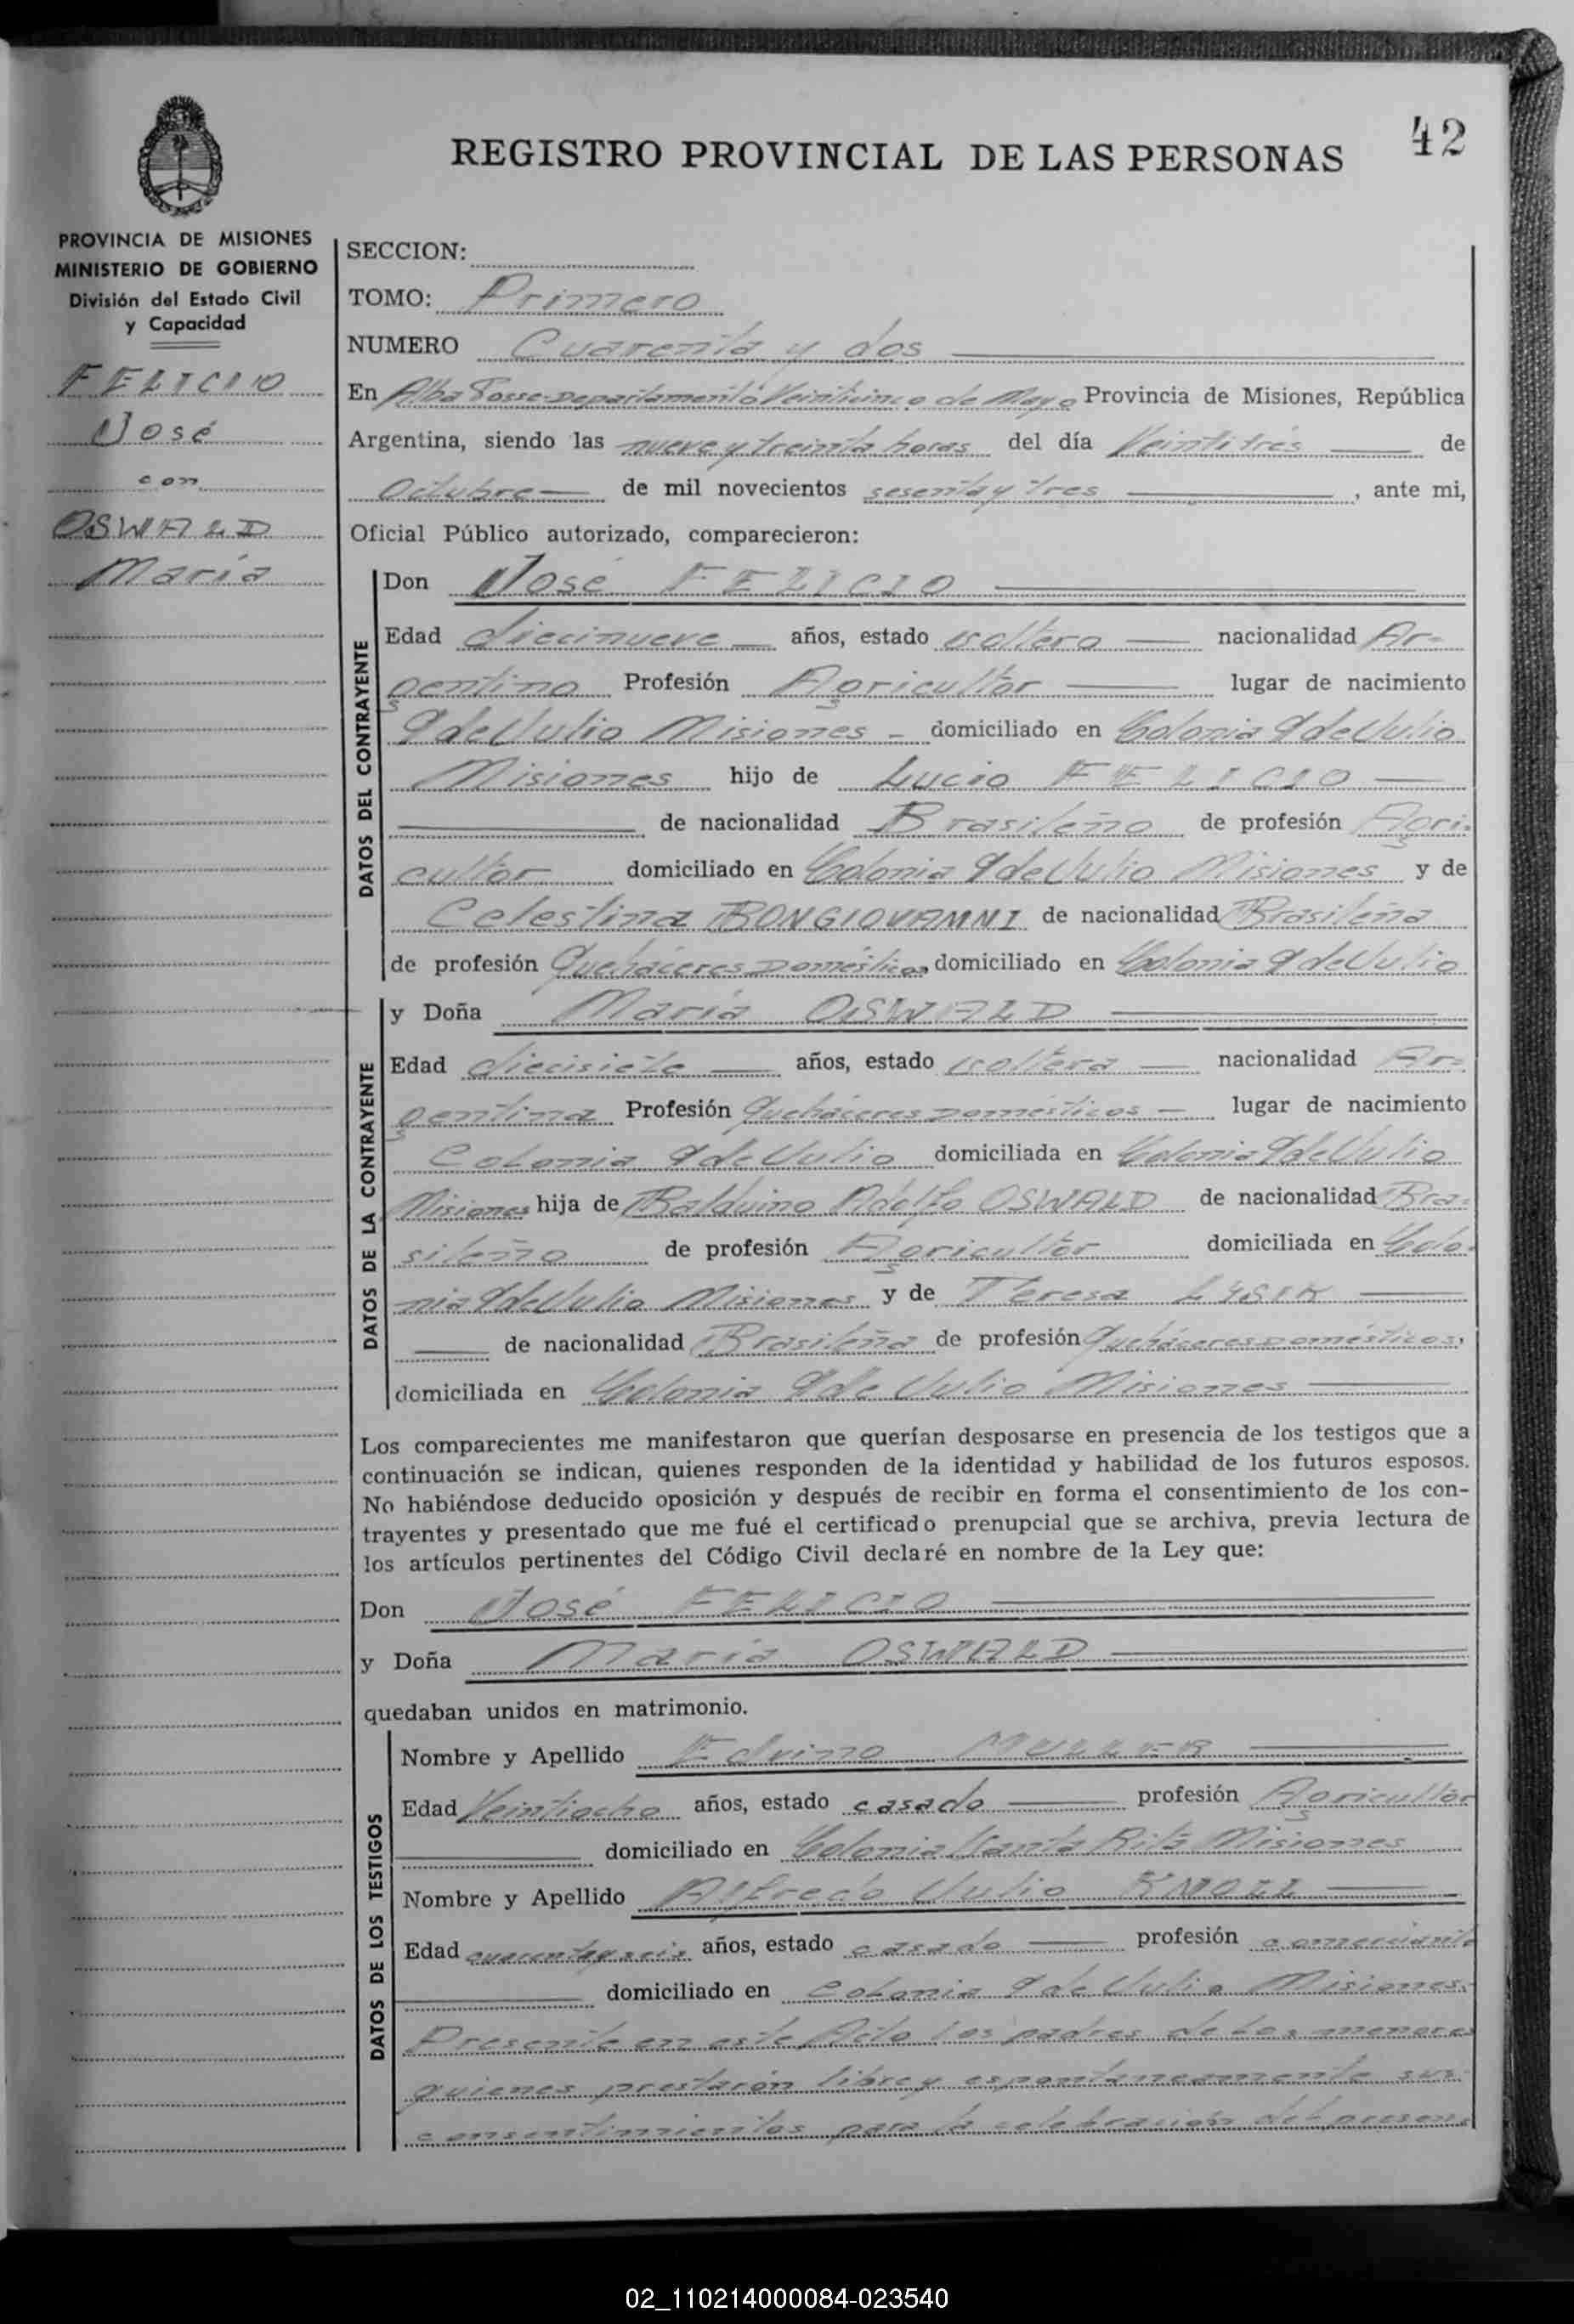 42
REGISTRO PROVINCIAL DE LAS PERSONAS
PROVINCIA DE MISIONES
MINISTERIO DE GOBIERNO
División del Estado Civil
y Capacidad
FELICIO
José
con
OSWALD
María
SECCION:
TOMO: Primero
NUMERO Cuarenta y dos
En Alba Posse-Departamento Veinticinco de Mayo Provincia de Misiones, República
Argentina, siendo las nueve y treinta horas del día Veintitrés de
Octubre de mil novecientos sesenta y tres, ante mi,
Oficial Público autorizado, comparecieron:
DATOS DEL CONTRAYENTE
Don José FELICIO
Edad diecinueve años, estado soltero nacionalidad Ar-
gentino Profesión Agricultor lugar de nacimiento
9 de Julio Misiones - domiciliado en Colonia 9 de Julio
Misiones hijo de Lucio FELICIO
de nacionalidad Brasileño de profesión Agri-
cultor domiciliado en Colonia 9 de Julio Misiones y de
Celestina BONGIOVANNI de nacionalidad Brasileña
de profesión Quehaceres Domésticos, domiciliado en Colonia 9 de Julio
DATOS DE LA CONTRAYENTE
y Doña María OSWALD
Edad diecisiete años, estado soltera nacionalidad Ar-
gentina Profesión Quehaceres Domésticos - lugar de nacimiento
Colonia 9 de Julio domiciliada en Colonia 9 de Julio
Misiones hija de Balduino Adolfo OSWALD de nacionalidad Bra-
sileño de profesión Agricultor domiciliada en Colo-
nia 9 de Julio Misiones y de Teresa LYSIK
de nacionalidad Brasileña de profesión Quehaceres Domésticos,
domiciliada en Colonia 9 de Julio Misiones
Los comparecientes me manifestaron que querían desposarse en presencia de los testigos que a
continuación se indican, quienes responden de la identidad y habilidad de los futuros esposos.
No habiéndose deducido oposición y después de recibir en forma el consentimiento de los con-
trayentes y presentado que me fué el certificado prenupcial que se archiva, previa lectura de
los artículos pertinentes del Código Civil declaré en nombre de la Ley que:
Don José FELICIO
y Doña María OSWALD
quedaban unidos en matrimonio.
DATOS DE LOS TESTIGOS
Nombre y Apellido Edvino MULLER
Edad Veintiocho años, estado casado profesión Agricultor
domiciliado en Colonia Santa Rita Misiones
Nombre y Apellido Alfredo Julio KNOLL
Edad cuarenta y seis años, estado casado profesión comerciante
domiciliado en Colonia 9 de Julio Misiones.
Presente en este Acto los padres de los menores
quienes prestarón libre y espontaneamente sus
consentimientos para la celebración del presen-
02_110214000084-023540